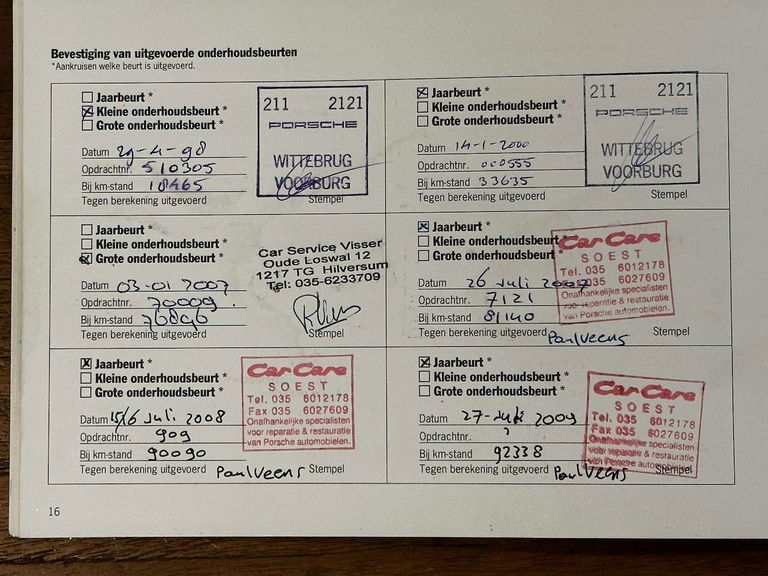 Bevestiging van uitgevoerde onderhoudsbeurten
*Aankruisen welke beurt is uitgevoerd.
Jaarbeurt *
Kleine onderhoudsbeurt *
Grote onderhoudsbeurt *
Datum 29-4-98
Opdrachtnr. 510305
Bij km-stand 18465
Tegen berekening uitgevoerd
Stempel
211 2121
PORSCHE
WITTEBRUG
VOORBURG
Jaarbeurt *
Kleine onderhoudsbeurt *
Grote onderhoudsbeurt *
Datum 14-1-2000
Opdrachtnr. 000555
Bij km-stand 33635
Tegen berekening uitgevoerd
Stempel
211 2121
PORSCHE
WITTEBRUG
VOORBURG
Jaarbeurt *
Kleine onderhoudsbeurt *
Grote onderhoudsbeurt *
Datum 03-01 2007
Opdrachtnr. 70009
Bij km-stand 76896
Tegen berekening uitgevoerd
Stempel
Car Service Visser
Oude Loswal 12
1217 TG Hilversum
Tel: 035-6233709
Jaarbeurt *
Kleine onderhoudsbeurt *
Grote onderhoudsbeurt *
Datum 26 Juli 2007
Opdrachtnr. 7121
Bij km-stand 81140
Tegen berekening uitgevoerd
Paul Veens
Stempel
Car Care
SOEST
Tel. 035 6012178
Fax 035 6027609
Onafhankelijke specialisten
voor reparatie & restauratie
van Porsche automobielen.
Jaarbeurt *
Kleine onderhoudsbeurt *
Grote onderhoudsbeurt *
Datum 15/16 Juli 2008
Opdrachtnr. 909
Bij km-stand 90090
Tegen berekening uitgevoerd
Paul Veens
Stempel
Car Care
SOEST
Tel. 035 6012178
Fax 035 6027609
Onafhankelijke specialisten
voor reparatie & restauratie
van Porsche automobielen.
Jaarbeurt *
Kleine onderhoudsbeurt *
Grote onderhoudsbeurt *
Datum 27-Juli 2009
Opdrachtnr. ?
Bij km-stand 92338
Tegen berekening uitgevoerd
Paul Veens
Stempel
Car Care
SOEST
Tel. 035 6012178
Fax 035 6027609
Onafhankelijke specialisten
voor reparatie & restauratie
van Porsche automobielen.
16